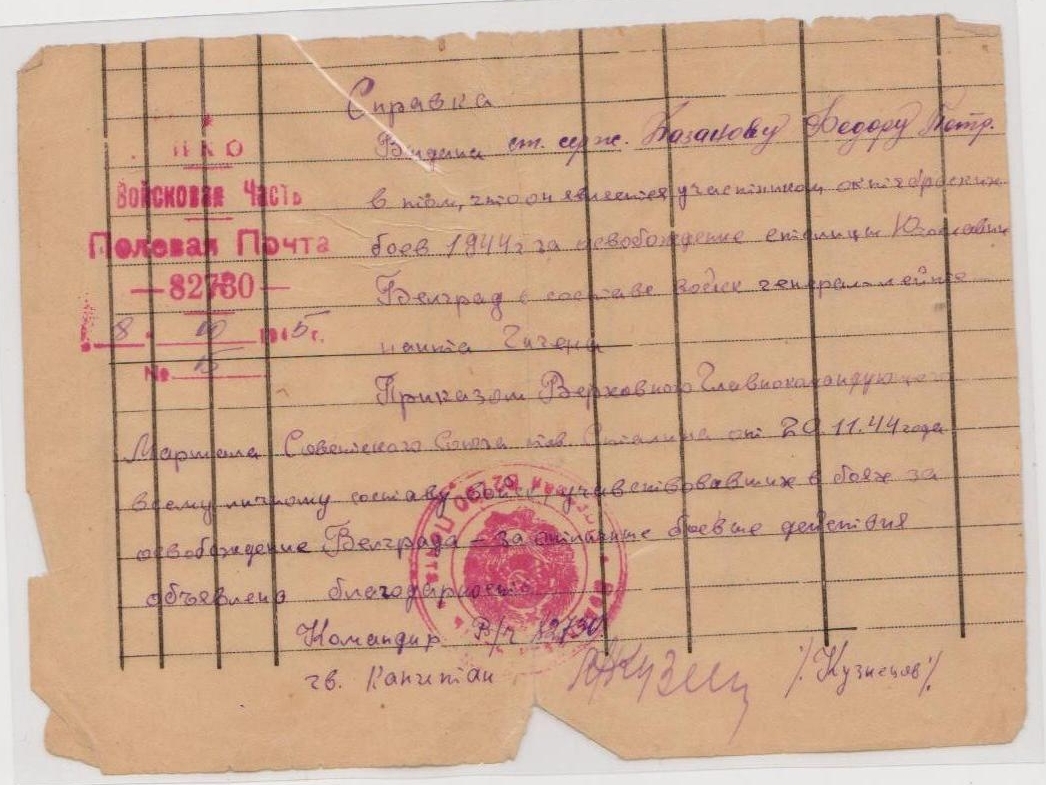 Справка
НКО
Войсковая Часть
Полевая Почта
— 82730 —
8
1945 г.
№ 15
Выдана ст. серж. Казакову Федору Петр.
в том, что он является участником октябрьских
боев 1944 г за освобождение столицы Югославии
Белград в составе войск генерал-лейте-
нанта
Приказом Верховного Главнокомандующего
Маршала Советского Союза тов. Сталина от 20.11.44 года
всему личному составу войск, участвовавших в боях за
освобождение Белграда – за отличные боевые действия
объявлена благодарность.
Командир В/ч 82730
гв. Капитан /Кузнецов/